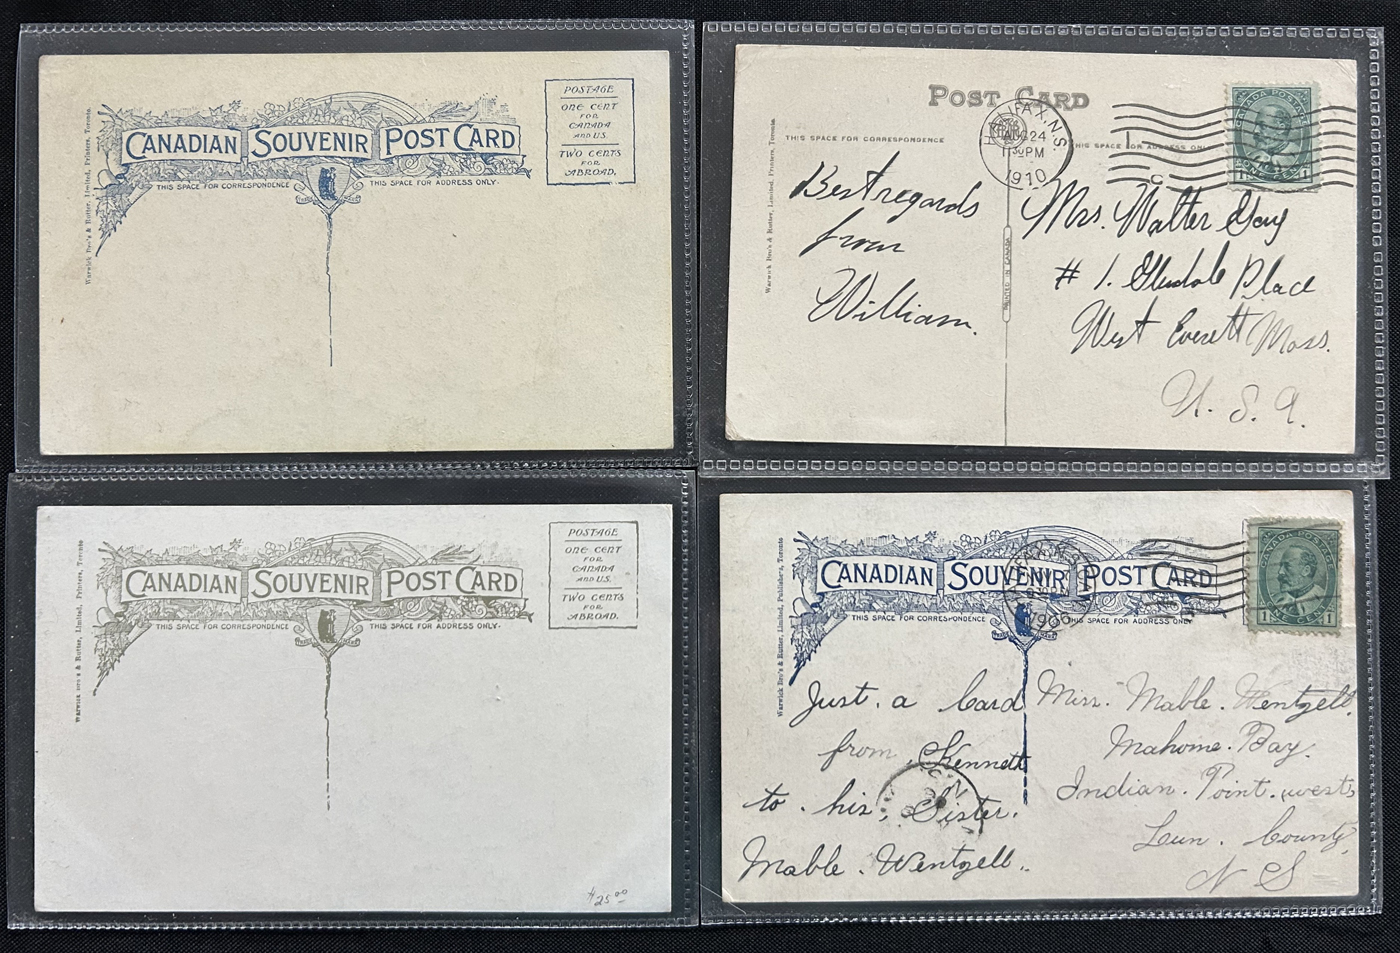 Warwick Bro's & Rutter, Limited, Printers, Toronto.
CANADIAN SOUVENIR POST CARD
THIS SPACE FOR CORRESPONDENCE
THIS SPACE FOR ADDRESS ONLY.
POSTAGE
ONE CENT
FOR
CANADA
AND U.S.
TWO CENTS
FOR
ABROAD.
Warwick Bro's & Rutter, Limited, Printers, Toronto.
POST CARD
THIS SPACE FOR CORRESPONDENCE
THIS SPACE FOR ADDRESS ONLY
HALIFAX, N.S.
AUG 24
11 30 PM
1910
CANADA POSTAGE
1 ONE CENT 1
PRINTED IN CANADA
Best regards
from
William.
Mrs. Walter Gay
# 1. Glendale Place
West Everett Mass.
U. S. A.
Warwick Bro's & Rutter, Limited, Printers, Toronto
CANADIAN SOUVENIR POST CARD
THIS SPACE FOR CORRESPONDENCE
THIS SPACE FOR ADDRESS ONLY.
POSTAGE
ONE CENT
FOR
CANADA
AND U.S.
TWO CENTS
FOR
ABROAD.
$25.00
Warwick Bro's & Rutter, Limited, Publishers, Toronto
CANADIAN SOUVENIR POST CARD
THIS SPACE FOR CORRESPONDENCE
THIS SPACE FOR ADDRESS ONLY
CANADA POSTAGE
1 ONE CENT 1
Just. a Card
from Kennett
to. his, Sister.
Mable. Wentzell..
Miss. Mable. Wentzell.
Mahone. Bay.
Indian. Point. west
Lun. County,
N S